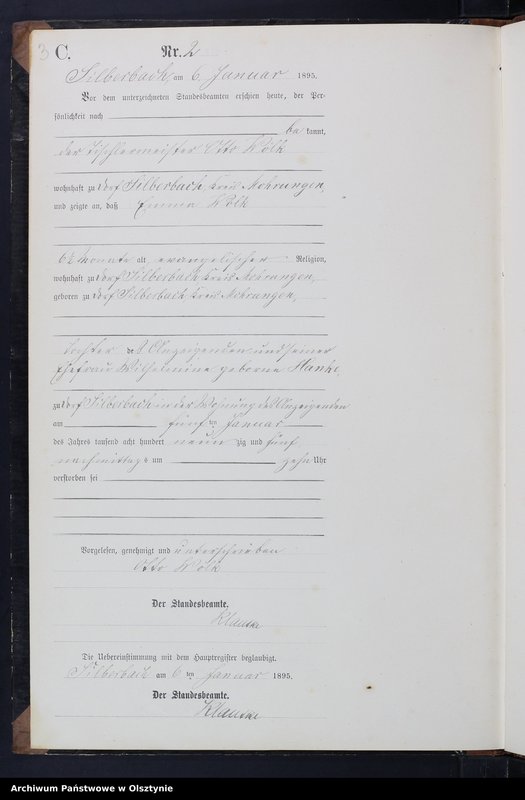 3 C. Nr. 2
Silberbach am 6. Januar 1895.
Vor dem unterzeichneten Standesbeamten erschien heute, der Per-
sönlichkeit nach
be kannt,
der Tischlermeister Otto Wölk
wohnhaft zu Dorf Silberbach, Kreis Mohrungen,
und zeigte an, daß Emma Wölk
6½ Monate alt, evangelischer Religion,
wohnhaft zu Dorf Silberbach, Kreis Mohrungen,
geboren zu Dorf Silberbach, Kreis Mohrungen,
Tochter des Anzeigenden und seiner
Ehefrau Wilhelmine geborne
zu Dorf Silberbach in der Wohnung des Anzeigenden
am fünften Januar
des Jahres tausend acht hundert neun zig und fünf
nachmittags um zehn Uhr
verstorben sei
Vorgelesen, genehmigt und unterschrieben
Otto Wölk
Der Standesbeamte.
Die Uebereinstimmung mit dem Hauptregister beglaubigt.
Silberbach am 6ten Januar 1895.
Der Standesbeamte.
Archiwum Państwowe w Olsztynie